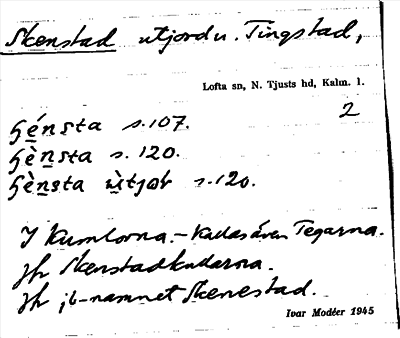 Skenstad utjord u. Tingstad,
Lofta sn, N. Tjusts hd, Kalm. l.
2
ɧénsta s. 107.
ɧènsta s. 120.
ɧènsta ùtjoɽ s. 120.
I Kumlorna. – Kallas även Tegarna.
Jfr Skenstadkullarna.
Jfr jb-namnet Skenestad.
Ivar Modéer 1945